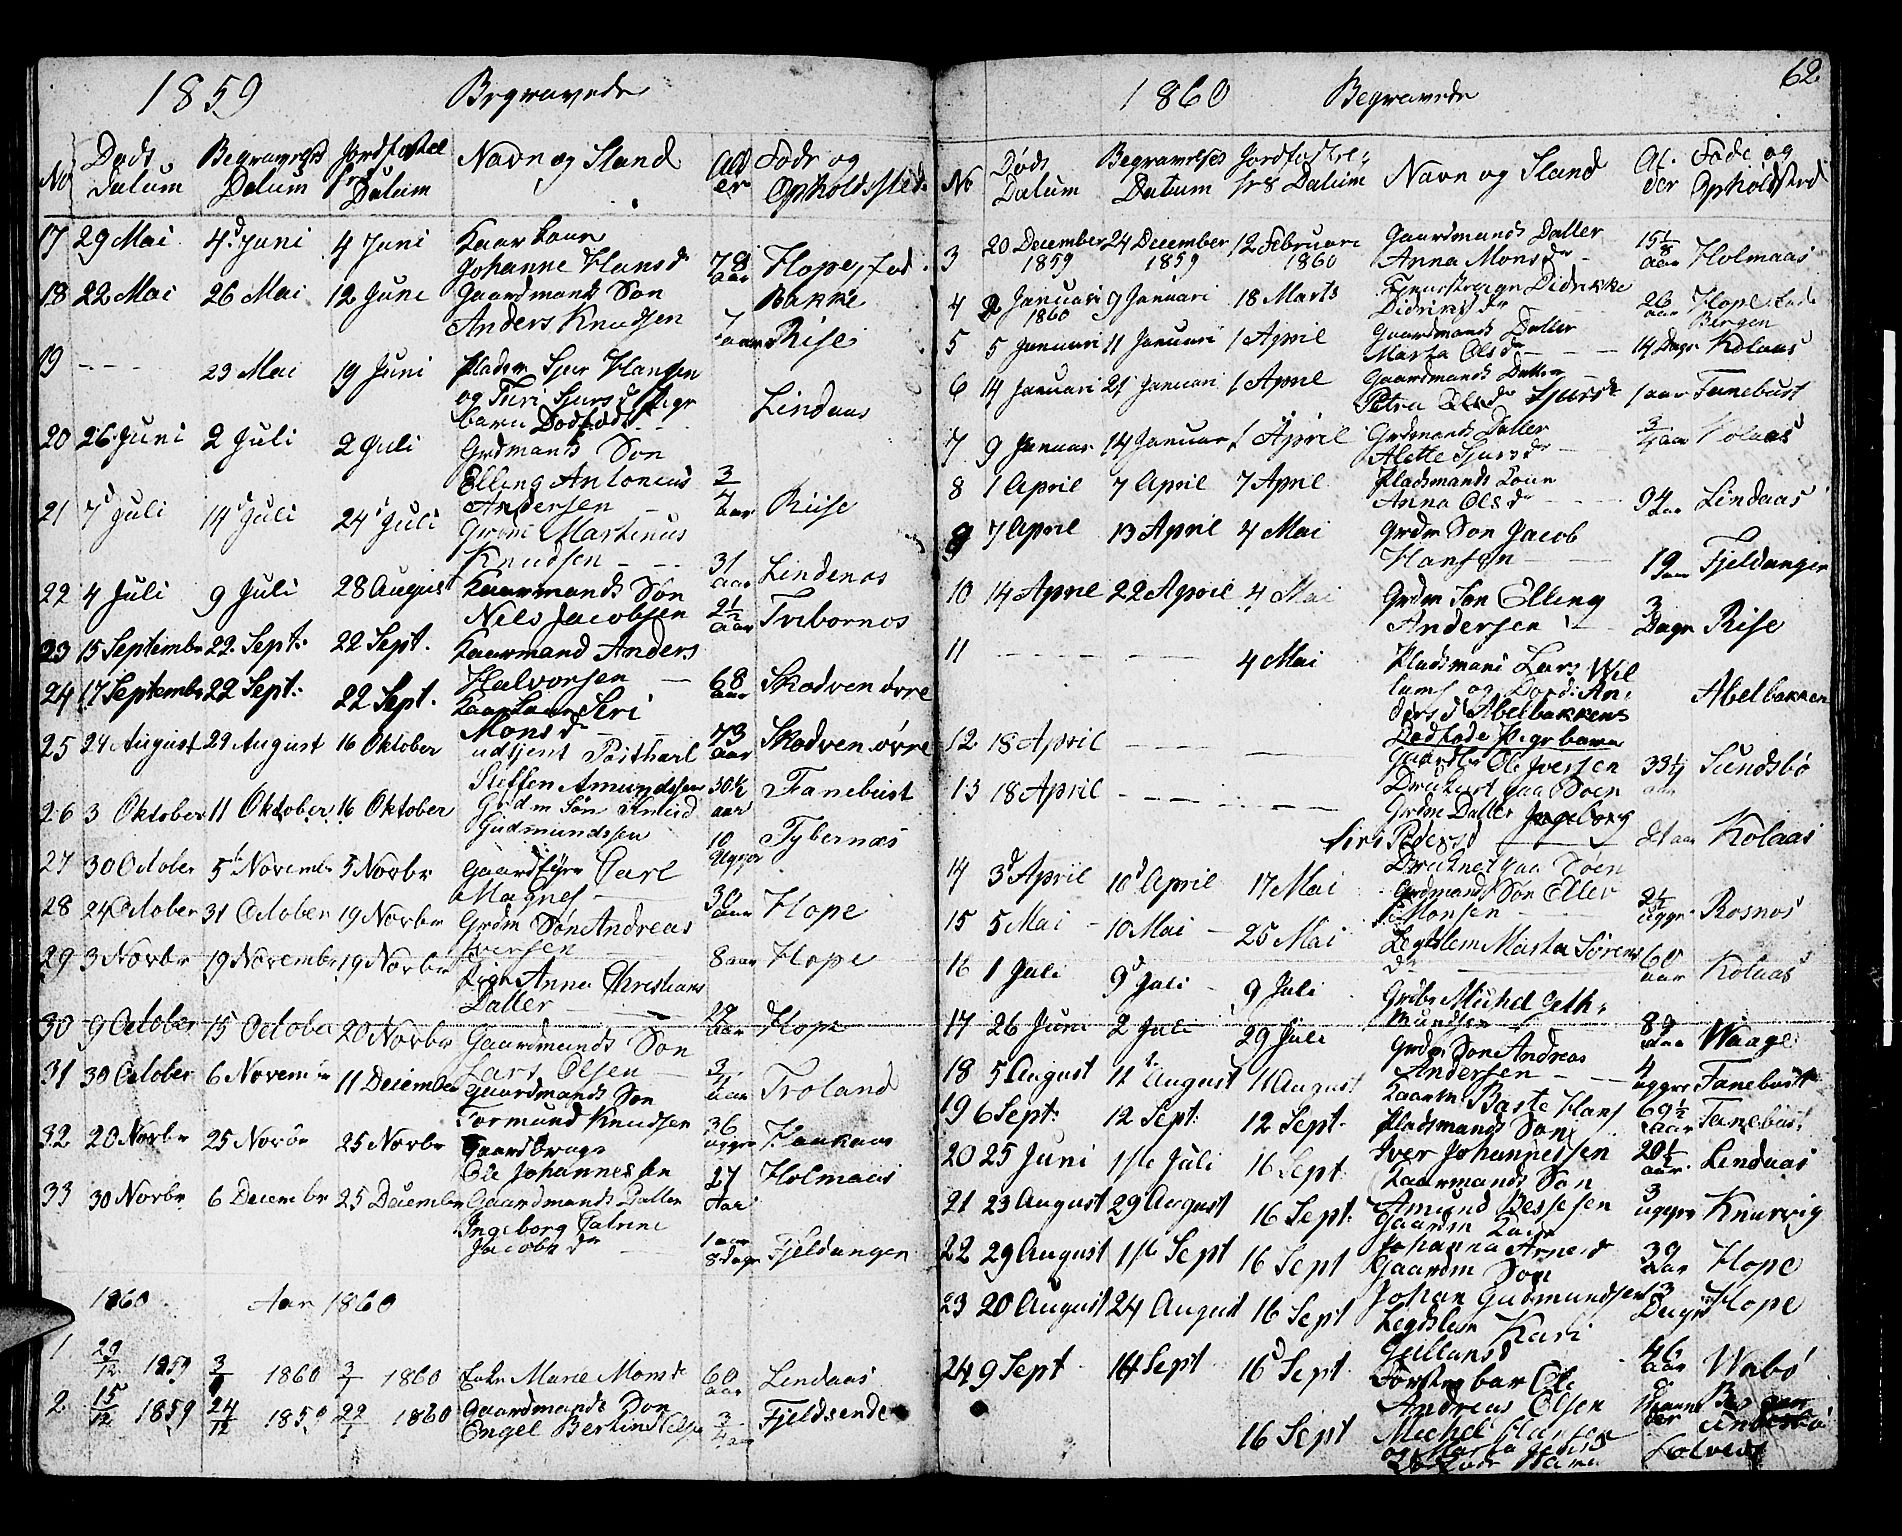 1859 Begravede
No Døds Datum Begravelses Datum Jordfæstelses Datum Navn og Stand Alder Føde og Opholdssted
17 29 Mai 4d Juni 4 Juni Kaarkone
Johanne Hansd 78 aar Hope, fød
Bakke
18 22 Mai 26 Mai 12 Juni Gaardmands Søn
Anders Knudsen 7 aar Rise
19 - - - 23 Mai 19 Juni Pladsm Sjur Hansen
og Turi Sjursd Pige
barn Dødfødt Lindaas
20 26 Juni 2 Juli 2 Juli Grdmands Søn
Elling Antonius
Andersen 3/4 aar Riise
21 7d Juli 14d Juli 24d Juli Grdm Martinus
Knudsen 31 aar Lindenæs
22 4 Juli 9 Juli 28 August Kaarmands Søn
Nils Jacobsen 2½ aar Tvibornøs
23 15 Septembr 22. Sept: 22 Sept. Kaarmand Anders
Halvorsen 68 aar Skodven øvre
24 17 Septembr 22 Sept: 22 Sept. Kaarkone Siri
Monsd 73 aar Skodven øvre
25 24 August 29 August 16 Oktober udtjent
Steffen Amundsen 30½ aar Fanebust
26 3 Oktober 11 Oktober 16 Oktober Grdm Søn
Gudmundssen 10 Uger Tybernæs
27 30 October 5t Novembr 5 Novbr Carl
Magnes 30 aar Hope
28 24 October 31 October 19 Novbr Grdm Søn Andreas
Iversen 8 aar Hope
29 3 Novbr 19 Novembr 19 Novbr Pige Anna Christians
Datter aar Hope
30 9 October 15 October 20 Novbr Gaardmands Søn
Lars Olsen 3/4 aar Troland
31 30 October 6 Novemb 11 Decembr Gaardmands Søn
Tormund Knudsen 36 uger Haukaas
32 20 Novbr 25 Novbr 25 Novbr
Ole Johannessen 27 aar Holmaas
33 30 Novbr 6 Decembr 25 Decembr Gaardmands Datter
Ingeborg Catrine
Jacobsdr 1 aar 8 dage Fjeldangen
1860 Aar 1860
1 29/12 1859 3/1 1860 3/1 1860 Enke Marie Monsd 60 aar Lindaas
2 15/12 1859 24/12 1859 22/1 1860 Gaardmands Søn
Engel Bertin 3/4 aar Fjeldsende
1860 Begravede 62
No Døds Datum Begravelses Datum Jordfæstelses Datum Navn og Stand Alder Føde og Opholdsted
3 20 December 1859 24 December 1859 12 Februari 1860 Gaardmands Datter
Anna Monsdr 15 1/8 aar Holmaas
4 2 Januari 1860 9 Januari 18 Marts Didrikke
Didriksdr 26 aar Hope født
Bergen
5 5 Januari 11 Januari 1 April Gaardmands Datter
Marta Olsdr 14 Dage Kolaas
6 14 Januari 21 Januari 1 April Gaardmands Datter
Petra Sjursdr 1 aar Fanebust
7 9 Januar 14 Januar 1 April Grdmands Datter
Alette Sjursdr 3/4 aar Kolaas
8 1 April 7 April 7 April Pladsmands Kone
Anna Olsdr 94 aar Lindaas
9 7 April 13 April 4 Mai Grdm Søn Jacob
Hansen 19 aar Fjeldanger
10 14 April 22 April 4 Mai Grdm Søn Elling
Andersen 3 Dage Rise
11 - - - 4 Mai Pladsmand Lars Wil
lums og Dordi An,
dersd Abelbakkens
Dødfødt Pigebarn Abelbakken
12 18 April - - - Ole Iversen 33¼ aar Sundsbø
Druknet paa Søen
13 18 April - - - Grdm Datter Ingeborg
Siri Pedersd aar Kolaas
Druknet paa Søen
14 3d April 10d April 17 Mai Grdmands Søn Eller
Monsen 2½ uger Rosnøs
15 5 Mai 10 Mai 25 Mai Legdslem Marta Sørens
dr 60 aar Kolaas
16 1 Juli 9d Juli 9 Juli Michel Geth,
mundsen 89 aar Waage
17 26 Juni 2 Juli 29 Juli Grdm Søn Andreas
Andersen 4 uger Fanebust
18 5 August 11t August 11 August Kaarm Baste Hans 69½ aar Fanebust
19 6 Sept: 12 Sept: 12 Sept. Pladsmands Søn
Iver Johannessen 20½ aar Lindaas
20 25 Juni 1ste Juli 16 Sept. Kaarmands Søn
Amund Bessesen 3 uger Knarvig
21 23 August 29 August 16 Sept. Gaardm
Johanna Arnesd 39 aar Hope
22 29 August 1ste Sept 16 Sept Gaardm Søn
Johan Gudmundsen 13 Dage Hope
23 20 August 24 August 16 Sept Legdslem Kari
Gullansd 46 aar Wabø
24 9 Sept 14 Sept 16d Sept Ole
Andreas Olsen
16 Sept Michel Hansen
og Marta